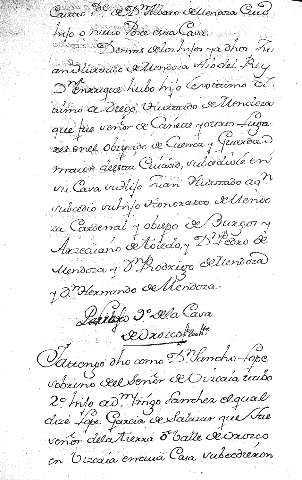 de Dn Alvaro de Mendoza
hijo o nieto
Demas de los hijos ya dhos Ju
an Hurtado de Mendoza Aio del Rey
Dn Enrrique hubo hijo
a Diego Hurtado de Mendoza
que fue señor de Cañete y otros Luga
res en el obispado de Cuenca y Guarda
maior de esta Ciudad, subcediole en
su Casa su hijo Juan Hurtado aqn
subcedio su hijo Honorato de Mendo
za Cardenal y obispo de Burgos y
Arzediano de Toledo, y Dn Pedro de
Mendoza y Dn Rodrigo de Mendoza
y Dn Hernando de Mendoza.
de la Casa
de Orozco
Ya tengo dho como Dn Sancho Lope
sobrino del Señor de Vizcaia hubo
2o hijo a Dn Iñigo Sanchez el qual
dize Lope Garcia de Salazar que fue
señor de la tierra o Valle de Orozco
en Vizcaia en cuia Casa subcedieron